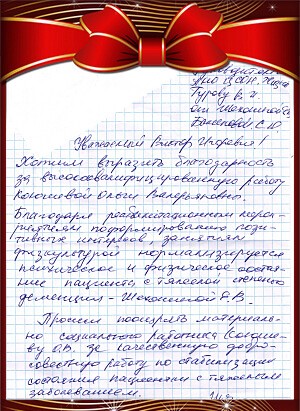 Гурову В. И.
от
Уважаемый Виктор Игоревич!
Хотим выразить благодарность
за высококвалифицированную работу
Ольги Валерьяновны.
Благодаря реабилитационным меро-
приятиям по формированию пози-
тивных интересов, занятиям
физкультурой нормализируется
психическое и физическое состоя-
ние пациента с тяжелой степенью
деменции -
Просим поощрить материаль-
но социального работника
О.В. за качественную добро-
совестную работу по стабилизации
состояния пациентки с тяжелым
заболеванием.